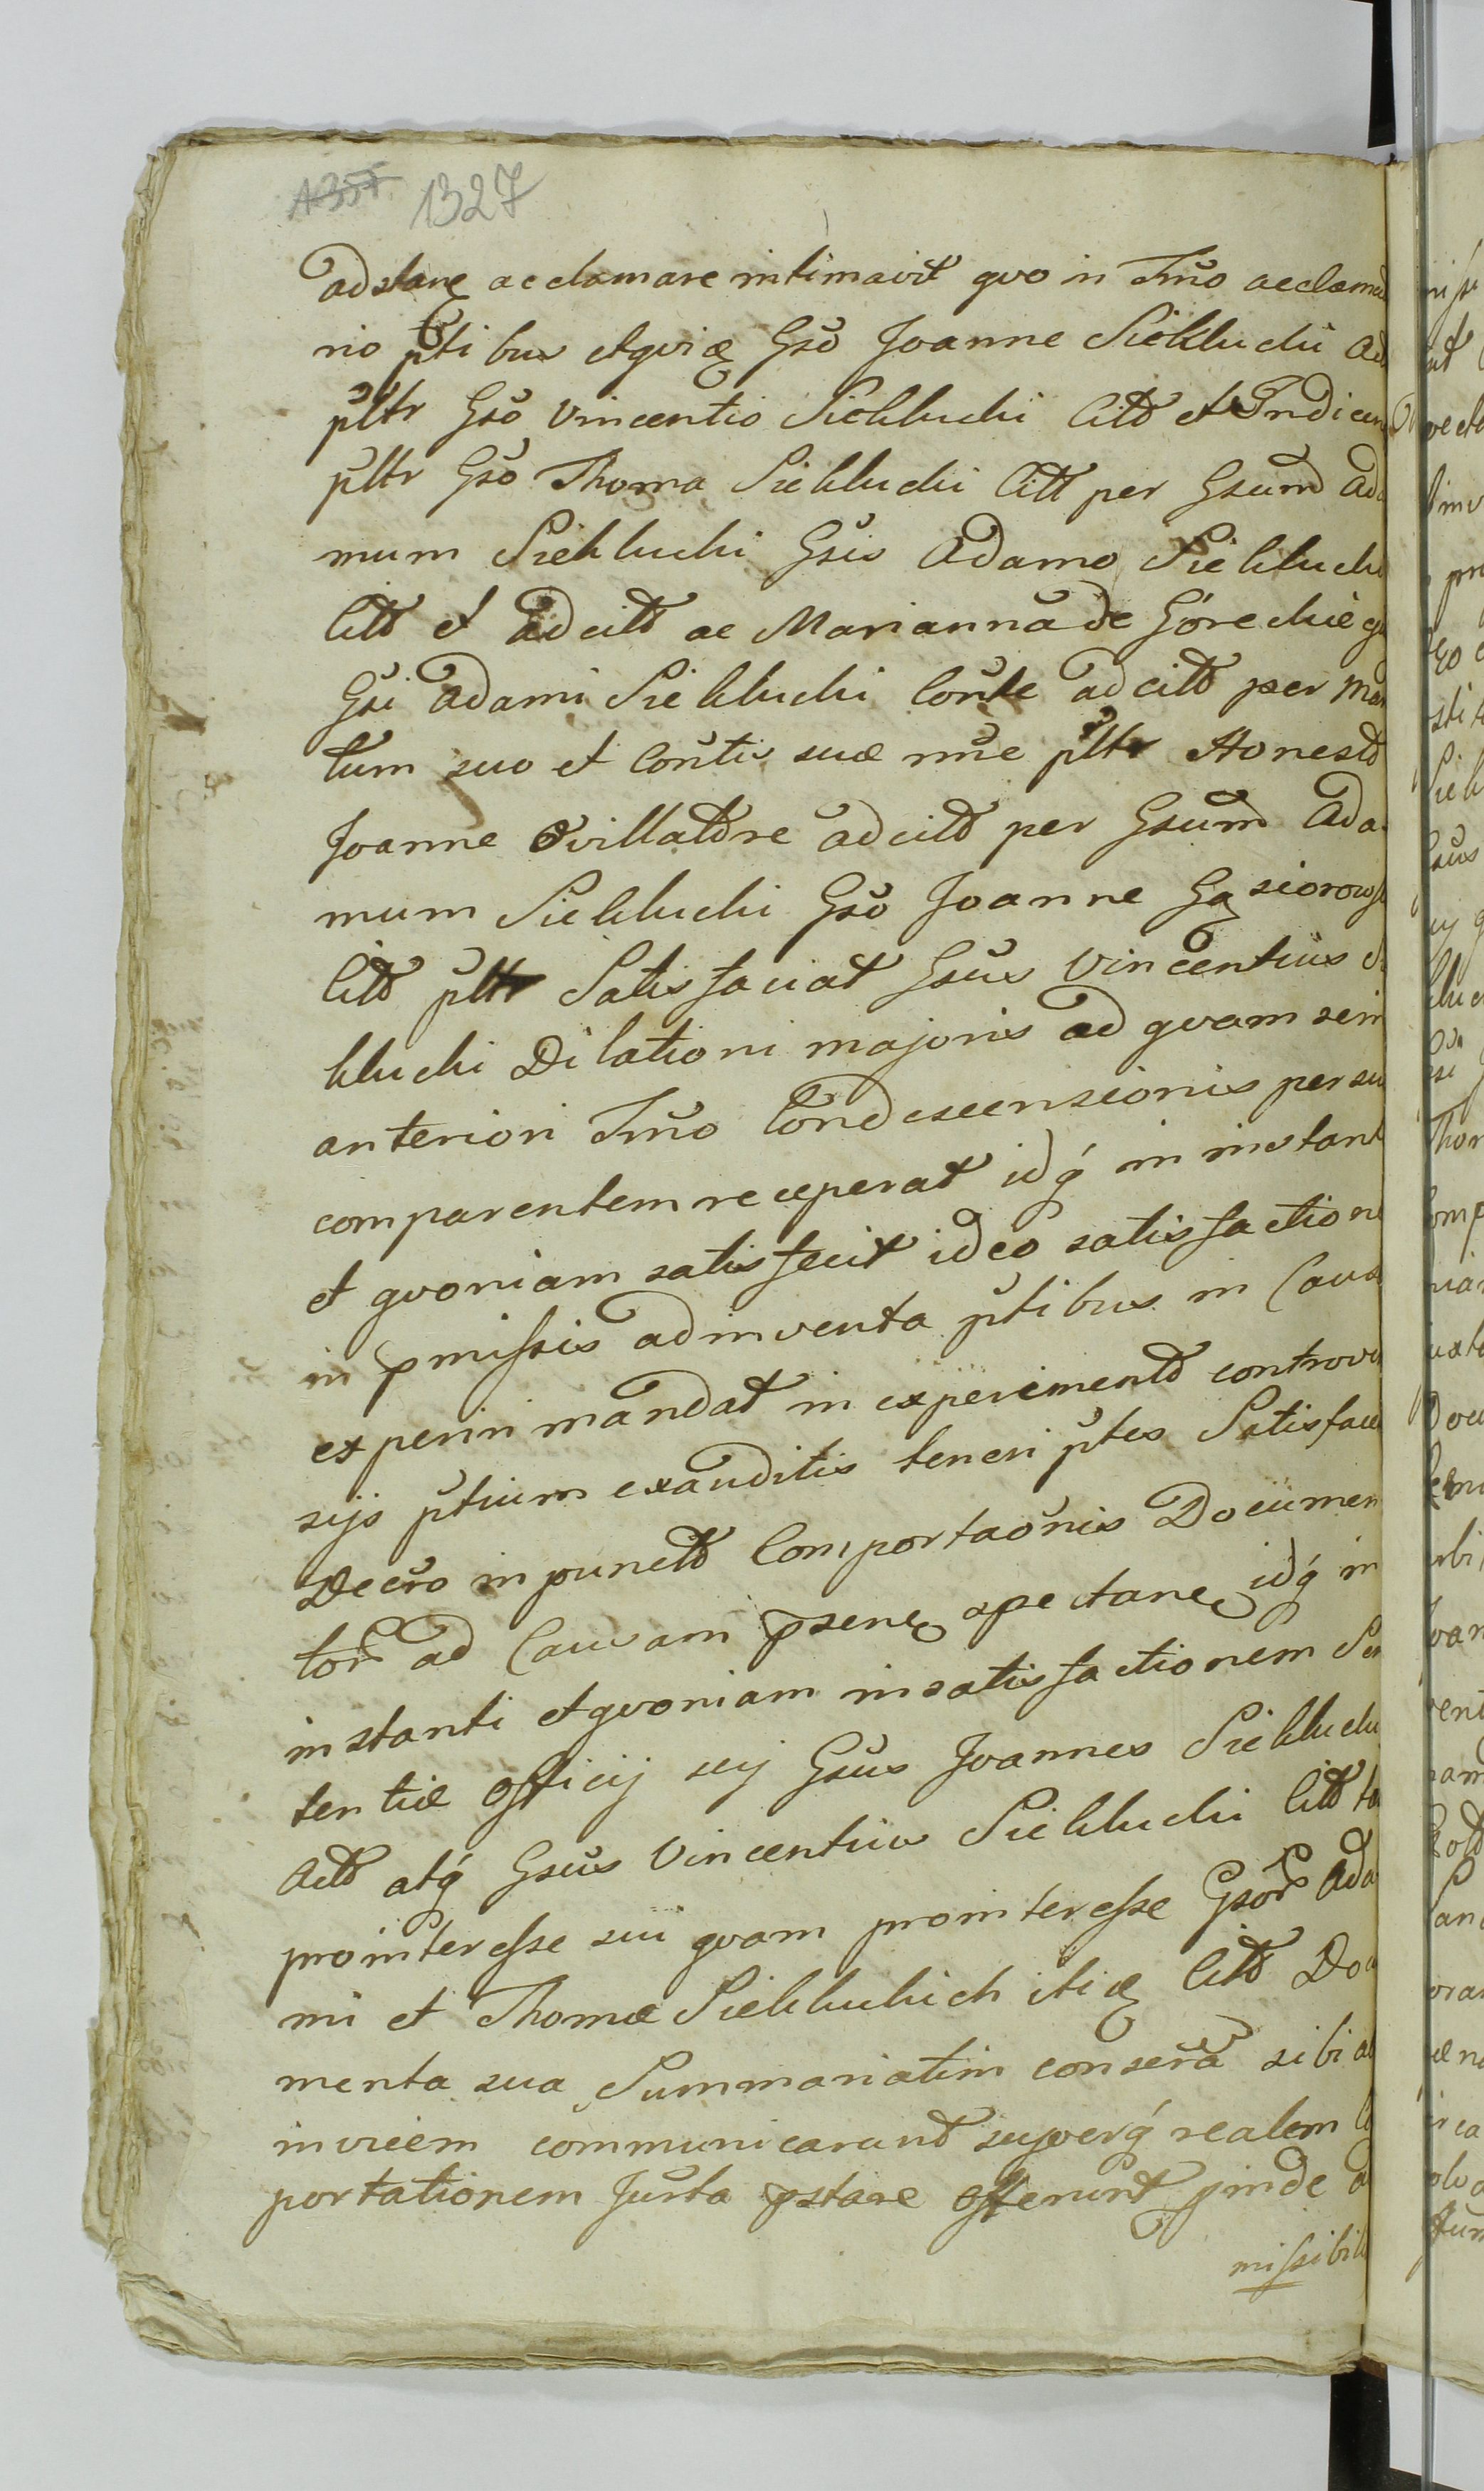 1327
adstanę acclamare intimavit qvo in Tm̃o acclamato
rio p̃tibus etqviæ Gso Joanne Siekłucki Act
p̃ltr Gso Vincentio Siekłucki Citt et Indicen
p̃ltr Gso Thoma Siekłucki Citt per Gsum Ada
mum Siekłucki Gsis Adamo Siekłucki
Citt et adcitt ac Marianna de Góreckie
Gsi Adami Siekłucki Conte adcitt per Mar
tum suo et Contis suæ nñe p̃ltr Honest
Joanne Villatore adcitt per Gsum Ada
mum Siekłucki Gso Joanne Gąsiorows
Citt p̃ltr Satisfaciat Gsus Vincentius
kłucki Dilationi majoris ad qvam sein
anteriori Tm̃o Condescensionis per su
comparentem receperat idq́ in instant
et qvoniam satisfecit ideo satisfactione
in pmissis adinventa p̃tibus in Caus
experiri mandat in experiment controver
sijs p̃tium exauditis teneri p̃tes Satisfac
Decro in punctt Comportaõnis Documen
tor̃ ad Causam psenę spectanę idq́ in
instanti etqvoniam insatisfactionem Sen
tentiæ officij sui Gsus Joannes Siekłucki
Act atq́ Gsus Vincentius Siekłucki Citt ta
prointeresse sui qvam prointeresse Gsor̃ Ada
mi et Thomæ Siekłuckich itię Citt Docu
menta sua Summariatim consera sibi ad
invicem communicarunt superq́ realem
portationem Jurta pstare offerunt pinde a
missibili